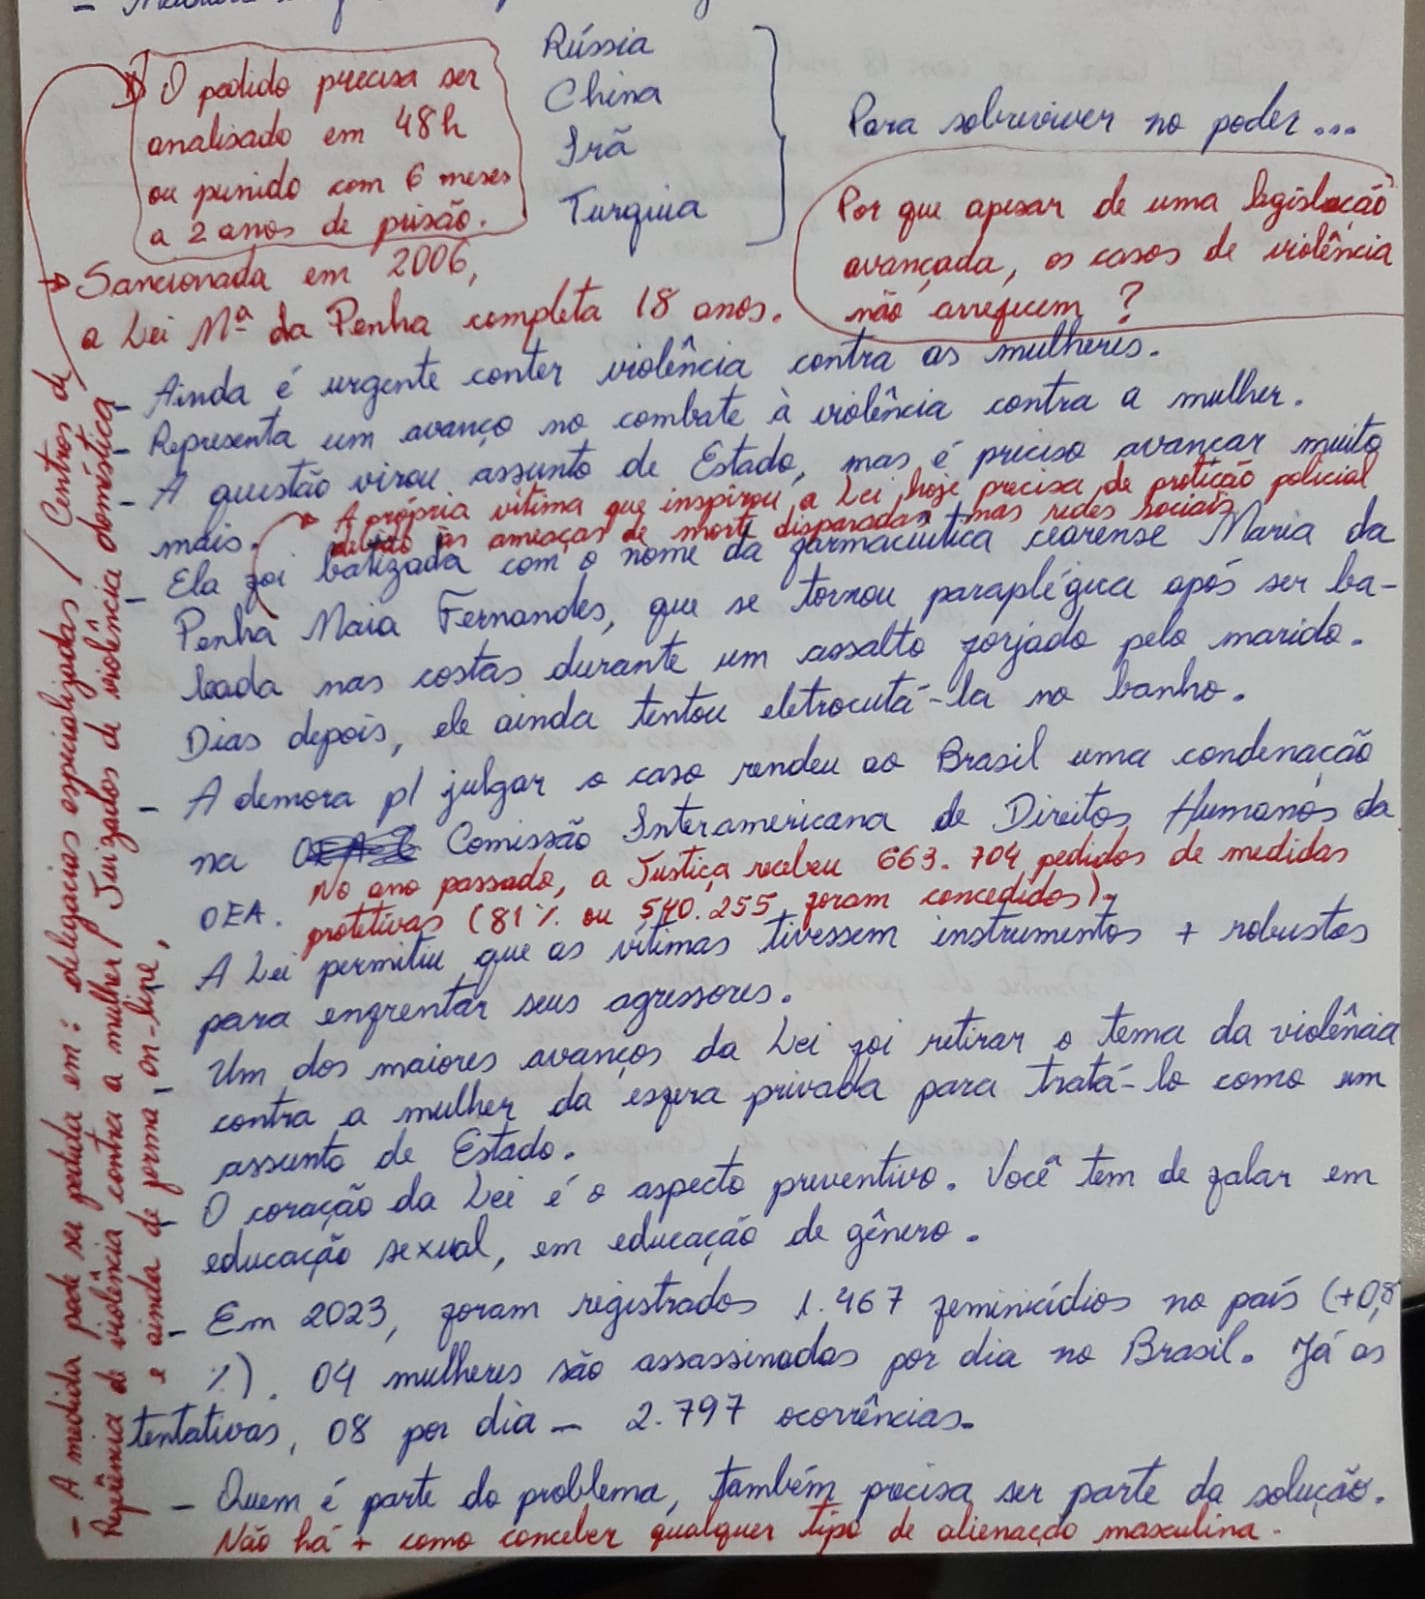 O pedido precisa ser
analisado em 48h
ou punido com 6 meses
a 2 anos de prisão.
Rússia
China
Irã
Turquia
Para sobreviver no poder...
Por que apesar de uma legislação
avançada, os casos de violência
não arrefecem ?
Sancionada em 2006,
a Lei Mª da Penha completa 18 anos.
- Ainda é urgente conter violência contra as mulheres.
- Representa um avanço no combate à violência contra a mulher.
- A questão virou assunto de Estado, mas é preciso avançar muito
mais.
A própria vítima que inspirou a Lei, hoje precisa de proteção policial
devido às ameaças de morte disparadas nas redes sociais.
- Ela foi batizada com o nome da farmacêutica cearense Maria da
Penha Maia Fernandes, que se tornou paraplégica após ser ba-
leada nas costas durante um assalto forjado pelo marido.
Dias depois, ele ainda tentou eletrocutá-la no banho.
- A demora p/ julgar o caso rendeu ao Brasil uma condenação
na Comissão Interamericana de Direitos Humanos da
OEA.
No ano passado, a Justiça recebeu 663.704 pedidos de medidas
protetivas (81% ou 540.255 foram concedidos).
- A Lei permitiu que as vítimas tivessem instrumentos + robustos
para enfrentar seus agressores.
- Um dos maiores avanços da Lei foi retirar o tema da violência
contra a mulher da esfera privada para tratá-lo como um
assunto de Estado.
- O coração da Lei é o aspecto preventivo. Você tem de falar em
educação sexual, em educação de gênero.
- Em 2023, foram registrados 1.467 feminicídios no país (+0,8
%). 04 mulheres são assassinadas por dia no Brasil. Já as
tentativas, 08 por dia - 2.797 ocorrências.
- Quem é parte do problema, também precisa ser parte da solução.
Não há + como conceber qualquer tipo de alienação masculina.
- A medida pode ser pedida em: delegacias especializadas / Centros de
Referência de violência contra a mulher / Juizados de violência doméstica
e ainda de forma on-line,